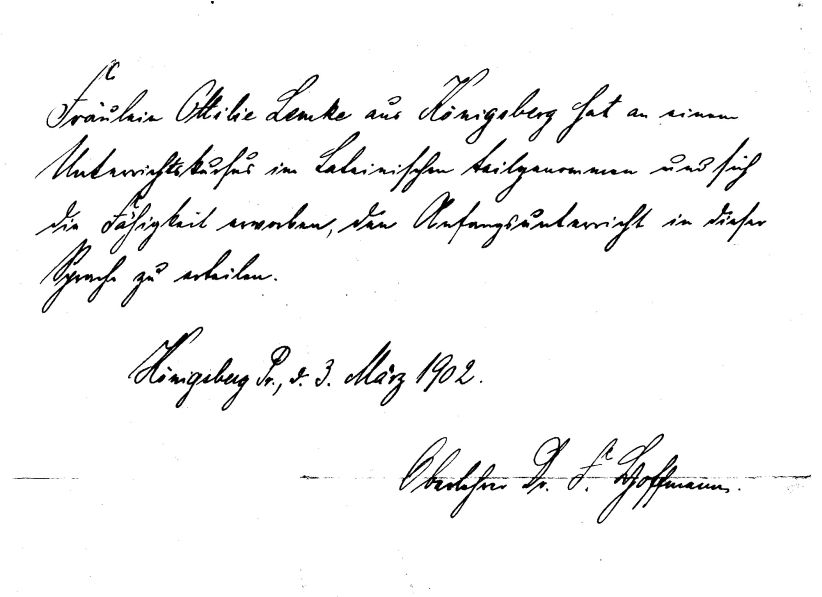 Fräulein Ottilie Lemke aus Königsberg hat an einem
Unterrichtskursus im Lateinischen teilgenommen und sich
die Fähigkeit erworben, den Anfangsunterricht in dieser
Sprache zu erteilen.
Königsberg Pr., d. 3. März 1902.
Oberlehrer Dr. F. Hoffmann.